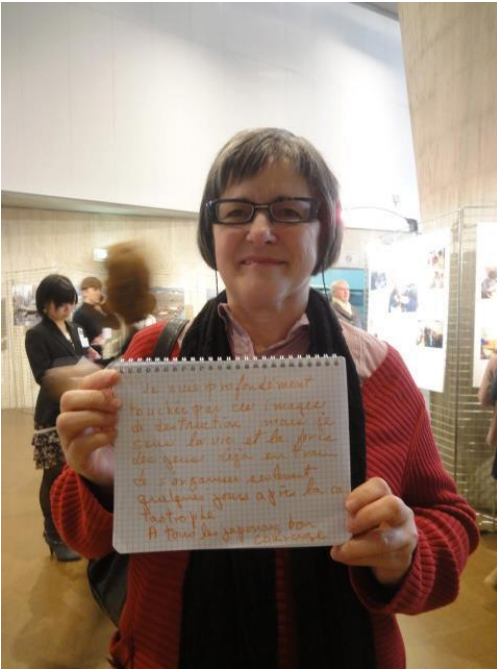 Je suis profondément
touchée par ces images
de destruction mais je
sens la vie et la force
des gens déjà en train
de s'organiser seulement
quelques jours après la ca
tastrophe
A tous les japonais bon
courage